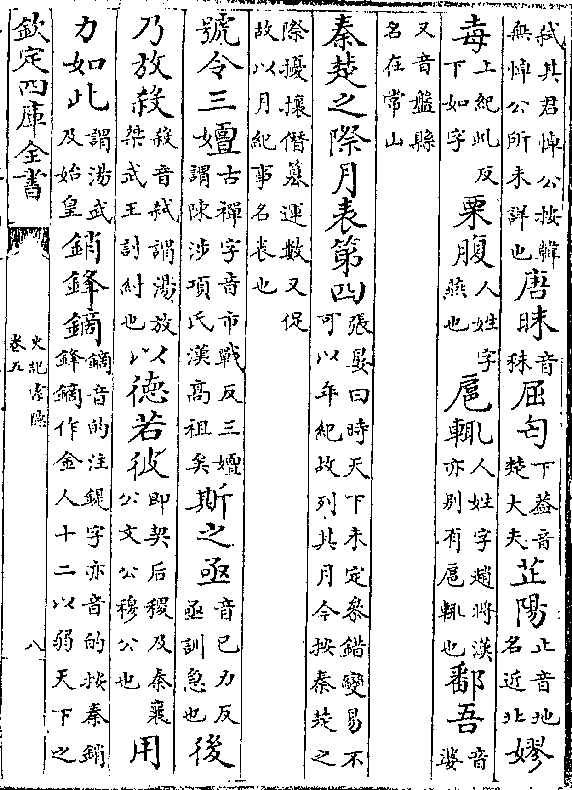 弑其君悼公按韓無悼公所未詳也唐昧音秣屈匄下葢音楚大夫芷陽止音地名近北嫪
毐上紀虬反下如字栗腹人姓字燕也扈輒人姓字趙將漢亦别有扈輒也鄱吾音婆
又音盤縣名在常山
秦楚之際月表第四張晏曰時天下未定叅錯變易不可以年紀故列其月今按秦楚之
際擾攘僭簒運數又促故以月紀事名表也
號令三嬗古禪字音市戰反三嬗謂陳涉項氏漢髙祖矣斯之亟音己力反亟訓急也後
乃放殺殺音弑謂湯放桀武王討紂也以德若彼即契后稷及秦襄公文公穆公也用
力如此謂湯武及始皇銷鋒鏑鏑音的注鍉字亦音的按秦銷鋒鏑作金人十二以弱天下之
欽定四庫全書
史記索隱
卷五
八